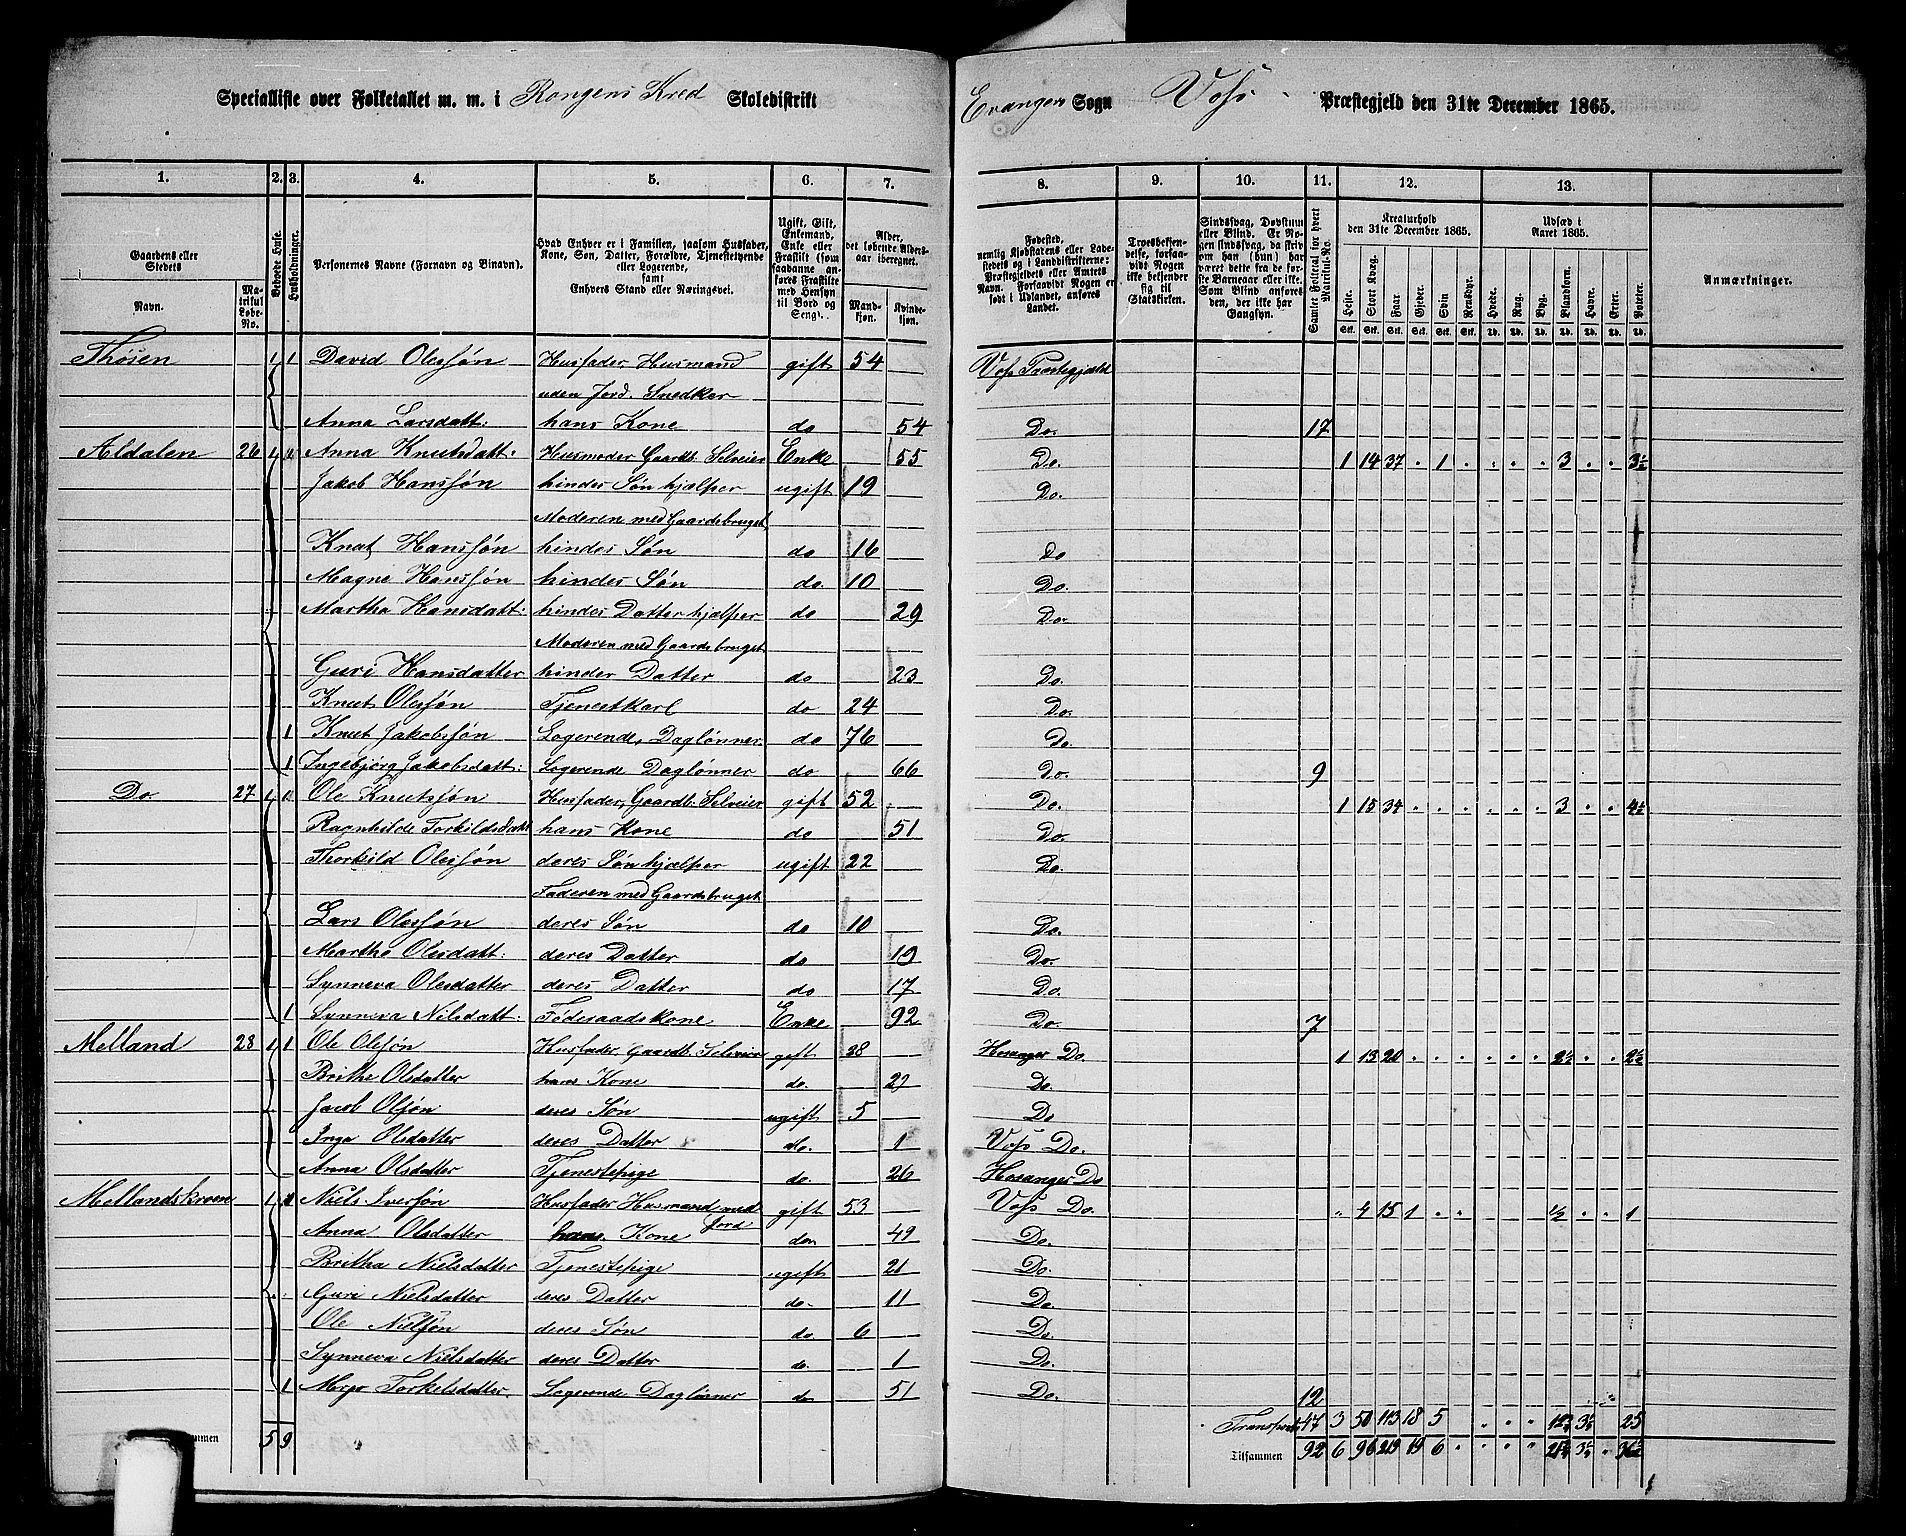 Specialliste over Folketallet m. m. i Rongens Kred Skoledistrikt Evanger Sogn Voss Præstegjeld den 31te December 1865.
1. 2. 3. 4. 5. 6. 7. 8. 9. 10. 11. 12. 13.
Gaardens eller Stedets
Navn. Matrikul Løbe-No.
Beboede Huse.
Husholdninger.
Personernes Navne (Fornavn og Binavn).
Hvad Enhver er i Familien, saasom Husfader, Kone, Søn, Datter, Forældre, Tjenestetyende eller Logerende, samt Enhvers Stand eller Næringsvei.
Ugift, Gift, Enkemand, Enke eller Fraskilt (som saadanne anføres Fraskilte med Hensyn til Bord og Seng).
Alder, det løbende Aldersaar iberegnet.
Mandkjøn. Kvindekjøn.
Fødested, nemlig Kjøbstadens eller Ladestedets eller i Landdistrikterne: Præstegjeldets eller Amtets Navn. Forsaavidt Nogen er født i Udlandet, anføres Landet.
Troesbekjendelse, forsaavidt Nogen ikke bekjender sig til Statskirken.
Sindssvag, Døvstum eller Blind. Er Nogen sindssvag, da skrives om han (hun) har været dette fra de første Barneaar eller ikke. Som Blind anføres den, der ikke har Gangsyn.
Samlet Folketal for hvert Matrikul-No.
Kreaturhold den 31te December 1865.
Heste. Stort Kvæg. Faar. Gjeder. Svin Rensdyr.
Udsæd i Aaret 1865.
Hvede. Rug. Byg. Blandkorn. Havre. Erter. Poteter.
Anmærkninger.
Thøsen 1 1 David Olessøn Husfader, Husmand gift 54 Voss Præstegjæld
uden Jord. Snedker
Anna Larsdatt: hans Kone do 54 Do. 17
Aldalen 26 1 Anna Knutsdatt: Husmoder Gaardb. Selveier Enke 55 Do. 1 14 37 . 1 . . . . 3 . . 3½
Jakob Hanssøn hindes Søn hjælper ugift 19 Do.
Moderen med Gaardsbruget
Knut Hanssøn hindes Søn do 16 Do
Magne Hanssøn hindes Søn do. 10 Do.
Martha Hansdatt: hindes Datter hjælper do 29 Do.
Moderen med Gaardsbruget
Guri Hansdatter hindes Datter do 23 Do.
Knut Olessøn Tjenestkarl do 24 Do.
1 Knut Jakobssøn Logerende, Daglønner do 76 Do.
1 Ingebjørg Jakobsdatt: Logerende Daglønner do 66 Do. 9
Do. 27 1 Ole Knutssøn Husfader, Gaardb. Selveier gift 52 Do. 1 15 34 . . . . . . 3 . .
Ragnhilde Torkildsdatt hans Kone do 51 Do.
Thorkild Olessøn deres Søn hjælper ugift 22 Do.
Faderen med Gaardsbruget
Lars Olessøn deres Søn do 10 Do.
Martha Olesdatt: deres Datter do 19 Do.
Synneva Olesdatter deres Datter do 17 Do.
1 Synneva Nilsdatt: Føderaadskone Enke 92 Do. 7
Melland 28 1 1 Ole Olsøn Husfader Gaardb. Selveier gift 28 Hosanger Do. 1 13 20 . . . . . . 2½ . . 2½
Brithe Olsdatter hans Kone do. 29 Do.
Jacob Olsøn deres Søn ugift 5 Do
Inga Olsdatter deres Datter do. 1 Voss Do.
Anna Olsdatter Tjenestepige do. 26 Hosanger Do
Mellandskroen 1 1 Niels Iversøn Husfader Husmand med Jord gift 53 Voss Do. . 4 15 1 . . . . . ½ . . 1
Anna Olsdatter hans Kone do 49 Do.
Britha Nielsdatter Tjenestepige ugift 21 Do.
Guri Nielsdatter deres Datter do. 11 Do.
Ole Nielsøn deres Søn do 6 Do.
Synneva Nielsdatter deres Datter do. 1 Do.
1 Torkelsdatter Logerende Daglønner do 51 Do. 12
Transport 47 3 50 113 18 5 . . . . 25
Tilsammen 5 9 Tilsammen 92 6 96 219 19 6